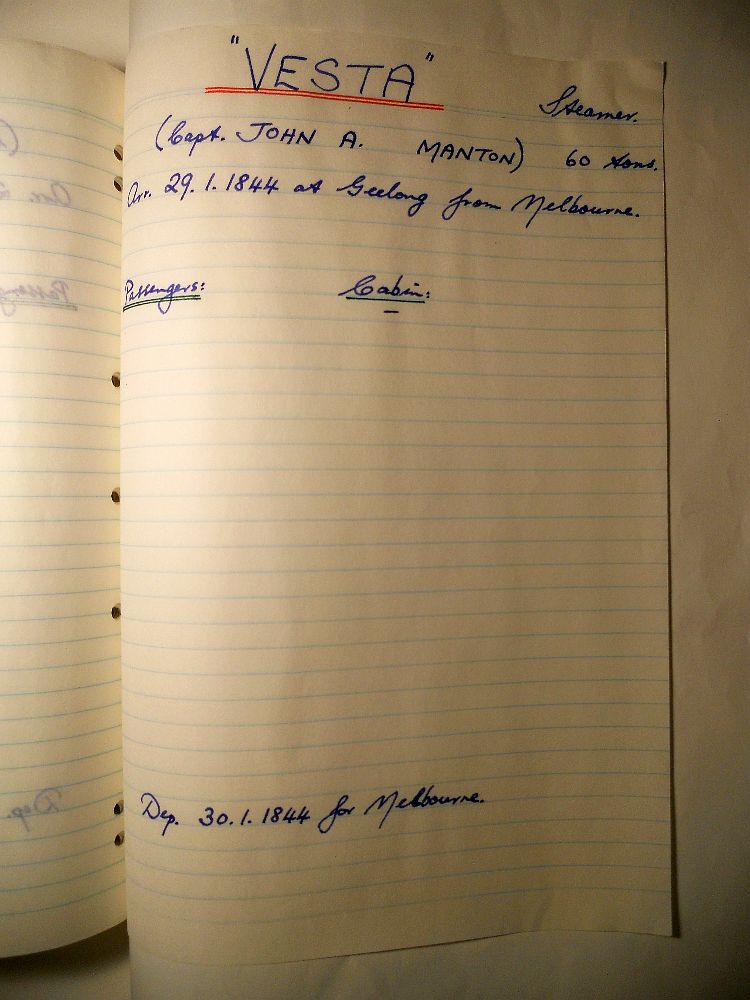 "VESTA"
Steamer.
(Capt. JOHN A. MANTON) 60 tons.
Arr. 29.1.1844 at Geelong from Melbourne.
Passengers: Cabin:
—
Dep. 30.1.1844 for Melbourne.